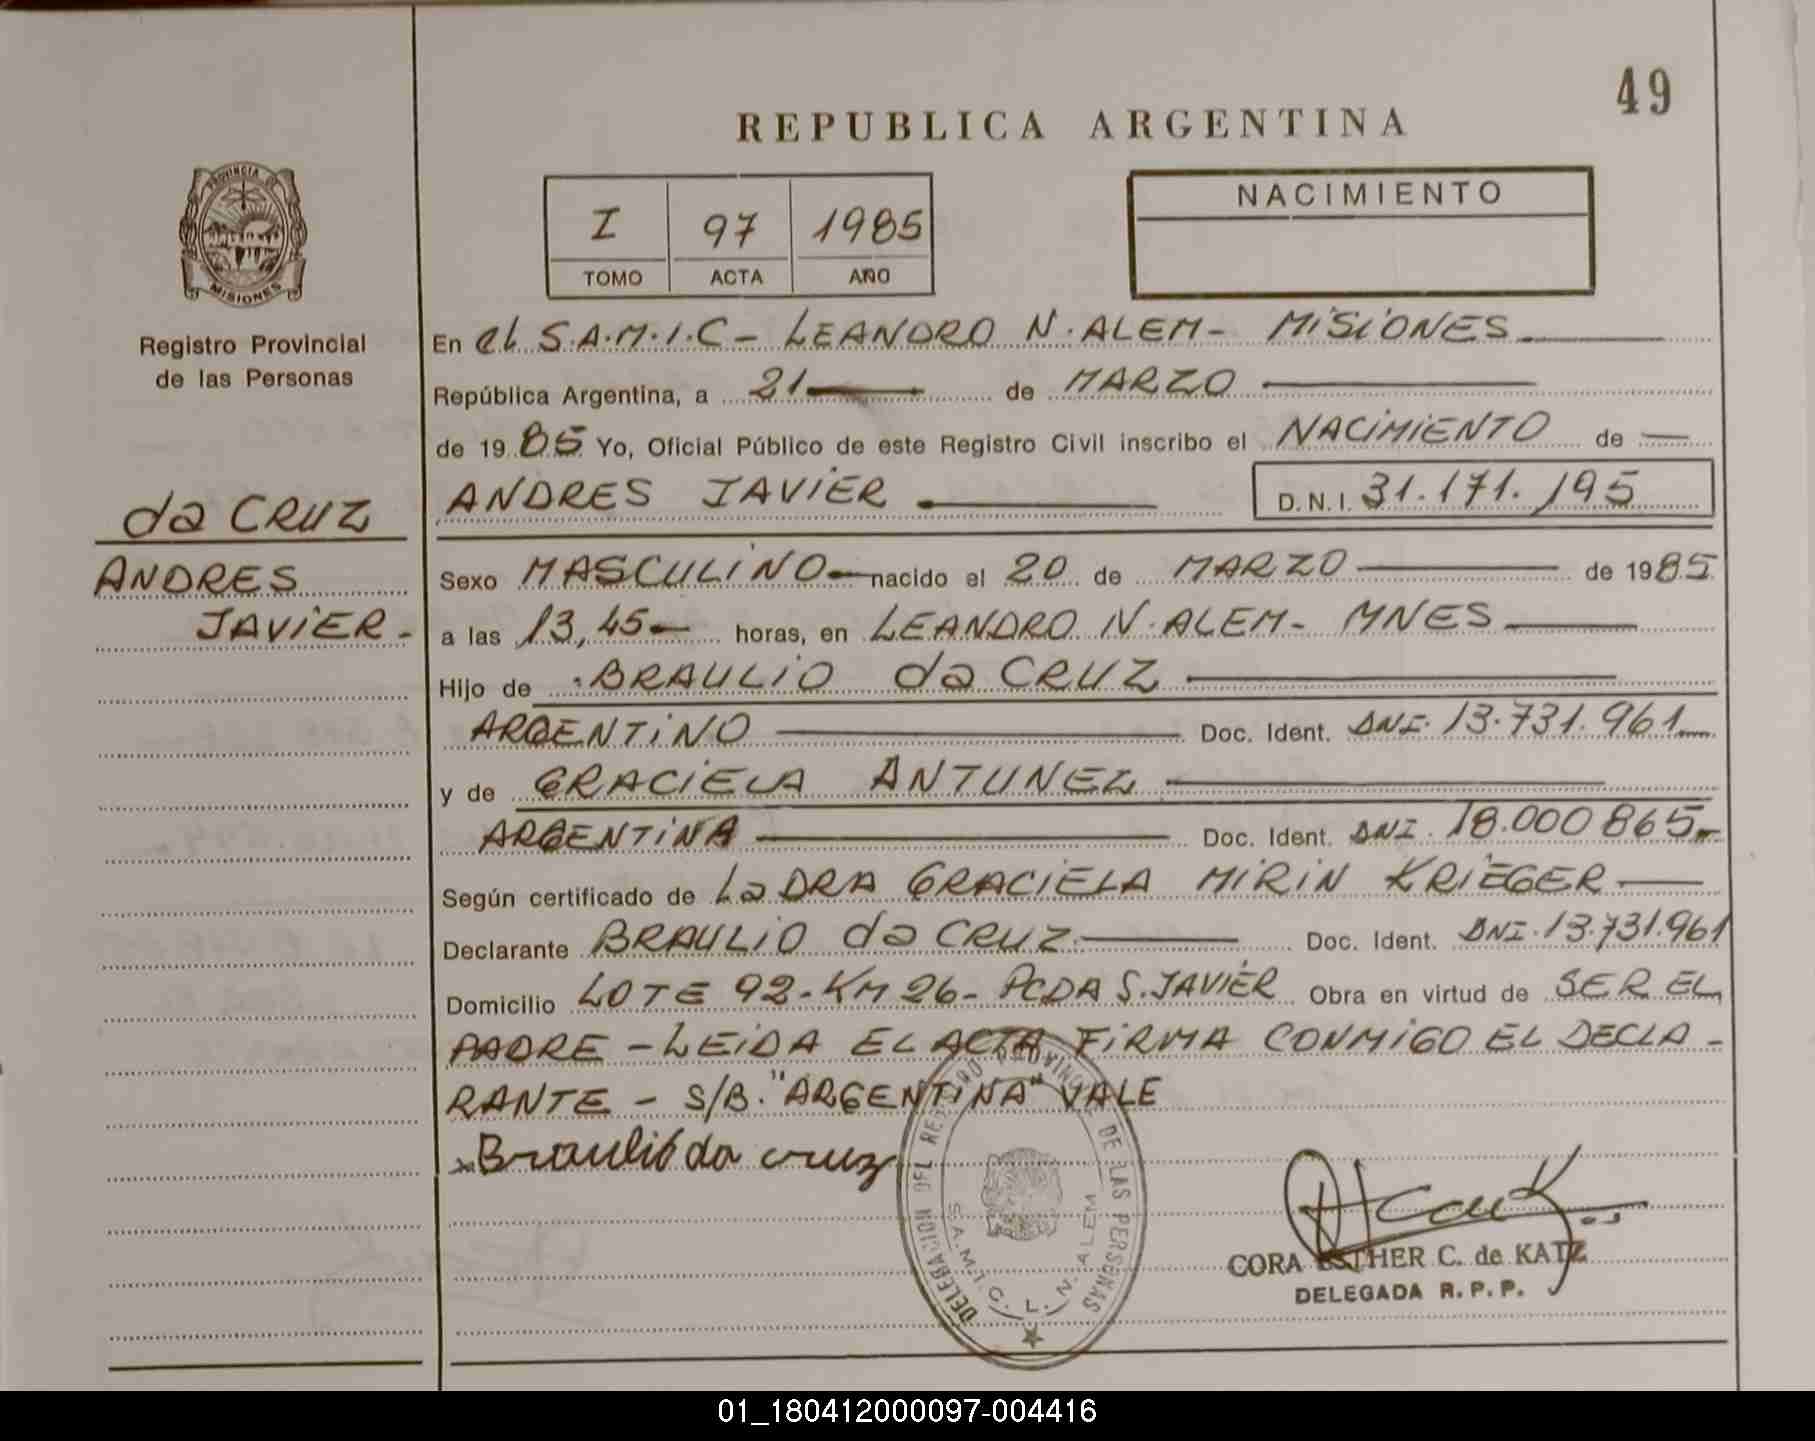 49
REPUBLICA ARGENTINA
PROVINCIA DE
MISIONES
I 97 1985
TOMO ACTA AÑO
NACIMIENTO
Registro Provincial
de las Personas
da CRUZ
ANDRES
JAVIER -
En el S.A.M.I.C - LEANDRO N. ALEM - MISIONES
República Argentina, a 21 de MARZO
de 1985 Yo, Oficial Público de este Registro Civil inscribo el NACIMIENTO de
ANDRES JAVIER D.N.I. 31.171.195
Sexo MASCULINO nacido el 20 de MARZO de 1985
a las 13,45 horas, en LEANDRO N. ALEM - MNES
Hijo de BRAULIO da CRUZ
ARGENTINO Doc. Ident. DNI. 13.731.961
y de GRACIELA ANTUNEZ
ARGENTINA Doc. Ident. DNI. 18.000865
Según certificado de La DRA GRACIELA MIRIN KRIEGER
Declarante BRAULIO da CRUZ Doc. Ident. DNI. 13.731.961
Domicilio LOTE 92 - KM 26 - PCDA S. JAVIER Obra en virtud de SER EL
PADRE - LEIDA EL ACTA FIRMA CONMIGO EL DECLA -
RANTE - S/B. "ARGENTINA" VALE
Braulio da cruz
DELEGACION DEL REGISTRO PROVINCIAL DE LAS PERSONAS
S.A.M.I.C. L. N. ALEM
CORA ESTHER C. de KATZ
DELEGADA R.P.P.
01_180412000097-004416